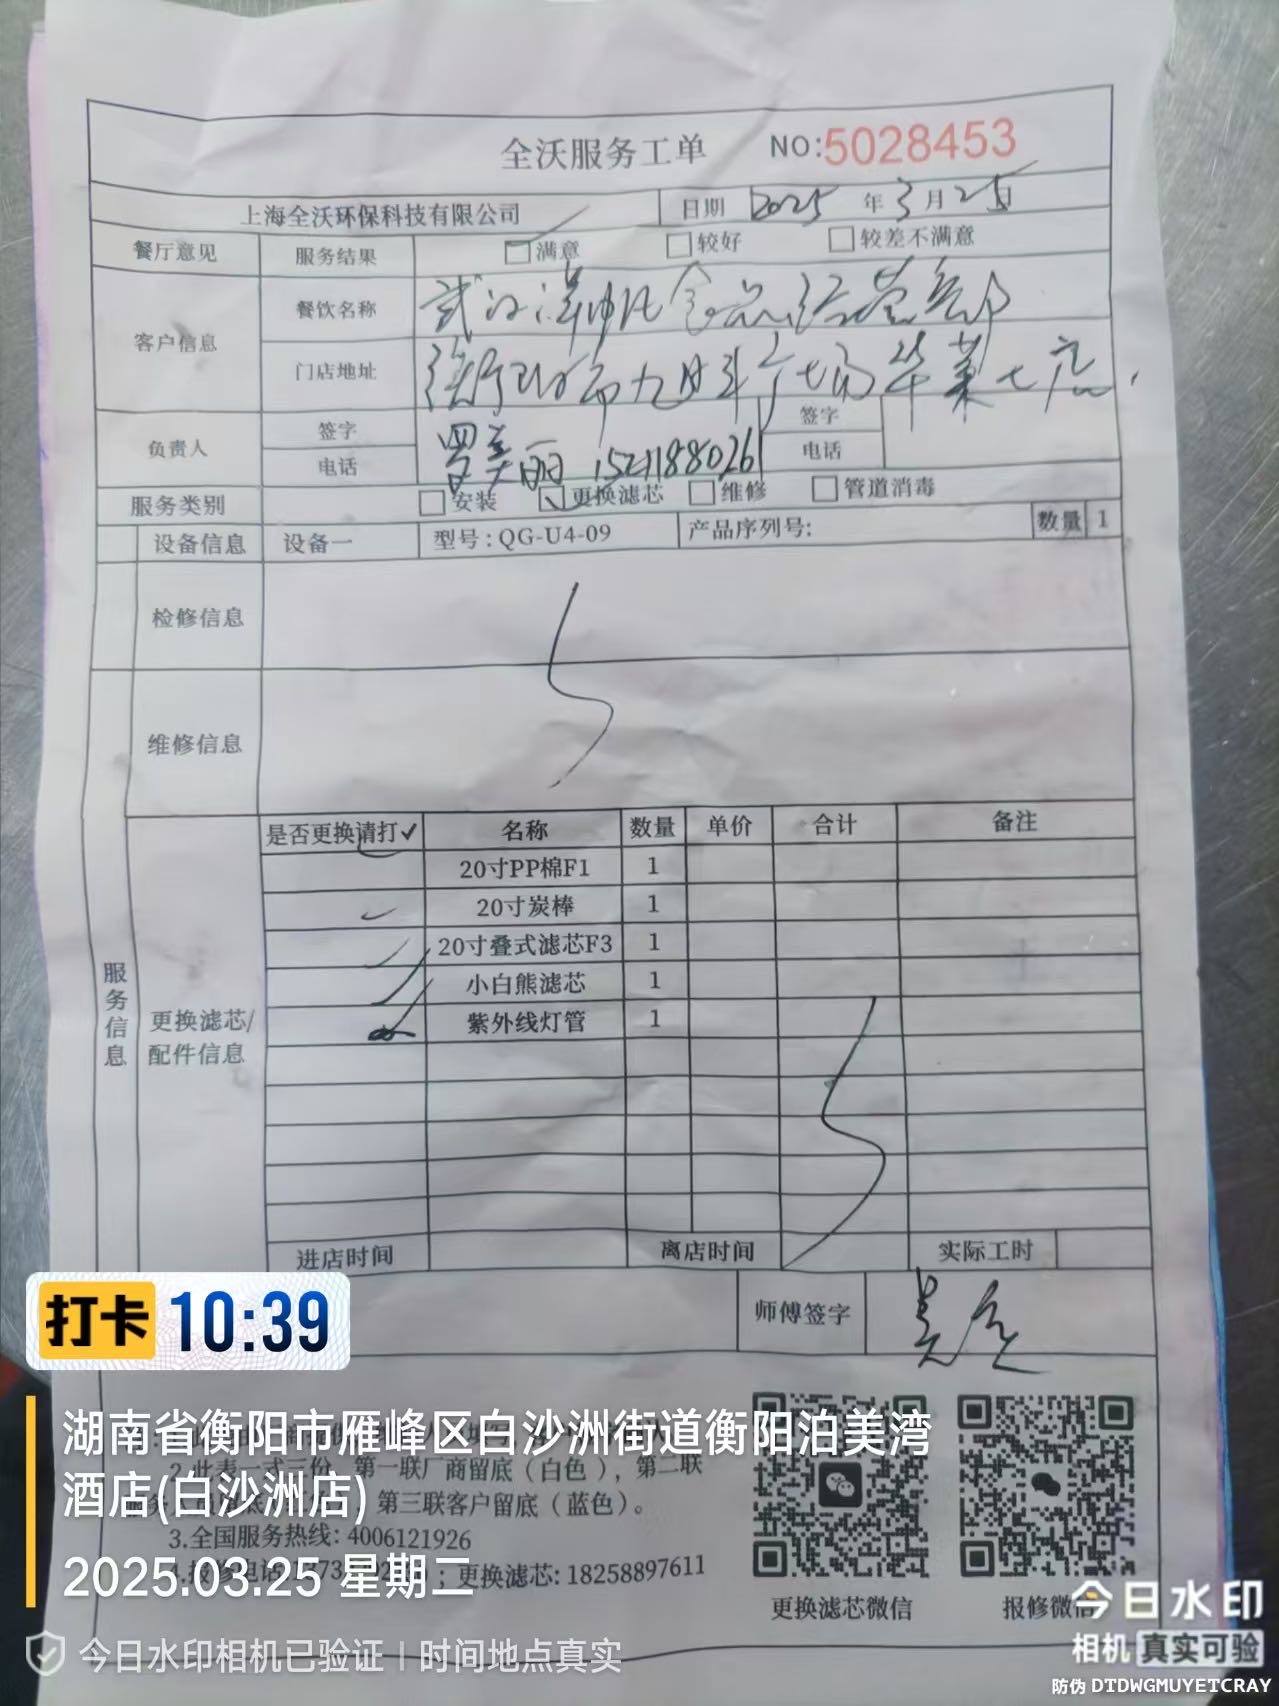 全沃服务工单 NO:5028453
上海全沃环保科技有限公司 日期 2025 年 3 月 25 日
餐厅意见 服务结果 满意 较好 较差不满意
客户信息 餐饮名称 武汉 食品经营部
门店地址 衡阳市 广场华莱士店
负责人 签字 罗美丽 签字
电话 15211880261 电话
服务类别 安装 更换滤芯 维修 管道消毒
设备信息 设备一 型号:QG-U4-09 产品序列号: 数量 1
检修信息
维修信息
服务信息
更换滤芯/
配件信息
是否更换请打✓ 名称 数量 单价 合计 备注
20寸PP棉F1 1
✓ 20寸炭棒 1
✓ 20寸叠式滤芯F3 1
✓ 小白熊滤芯 1
✓ 紫外线灯管 1
进店时间 离店时间 实际工时
师傅签字
打卡 10:39
湖南省衡阳市雁峰区白沙洲街道衡阳泊美湾
酒店(白沙洲店)
2025.03.25 星期二
今日水印相机已验证 | 时间地点真实
2.此表一式三份,第一联厂商留底(白色),第二联
第三联客户留底(蓝色)。
3.全国服务热线:4006121926
;更换滤芯:18258897611
更换滤芯微信 报修微信
今日水印
相机 真实可验
防伪 DTDWGMUYETCRAY